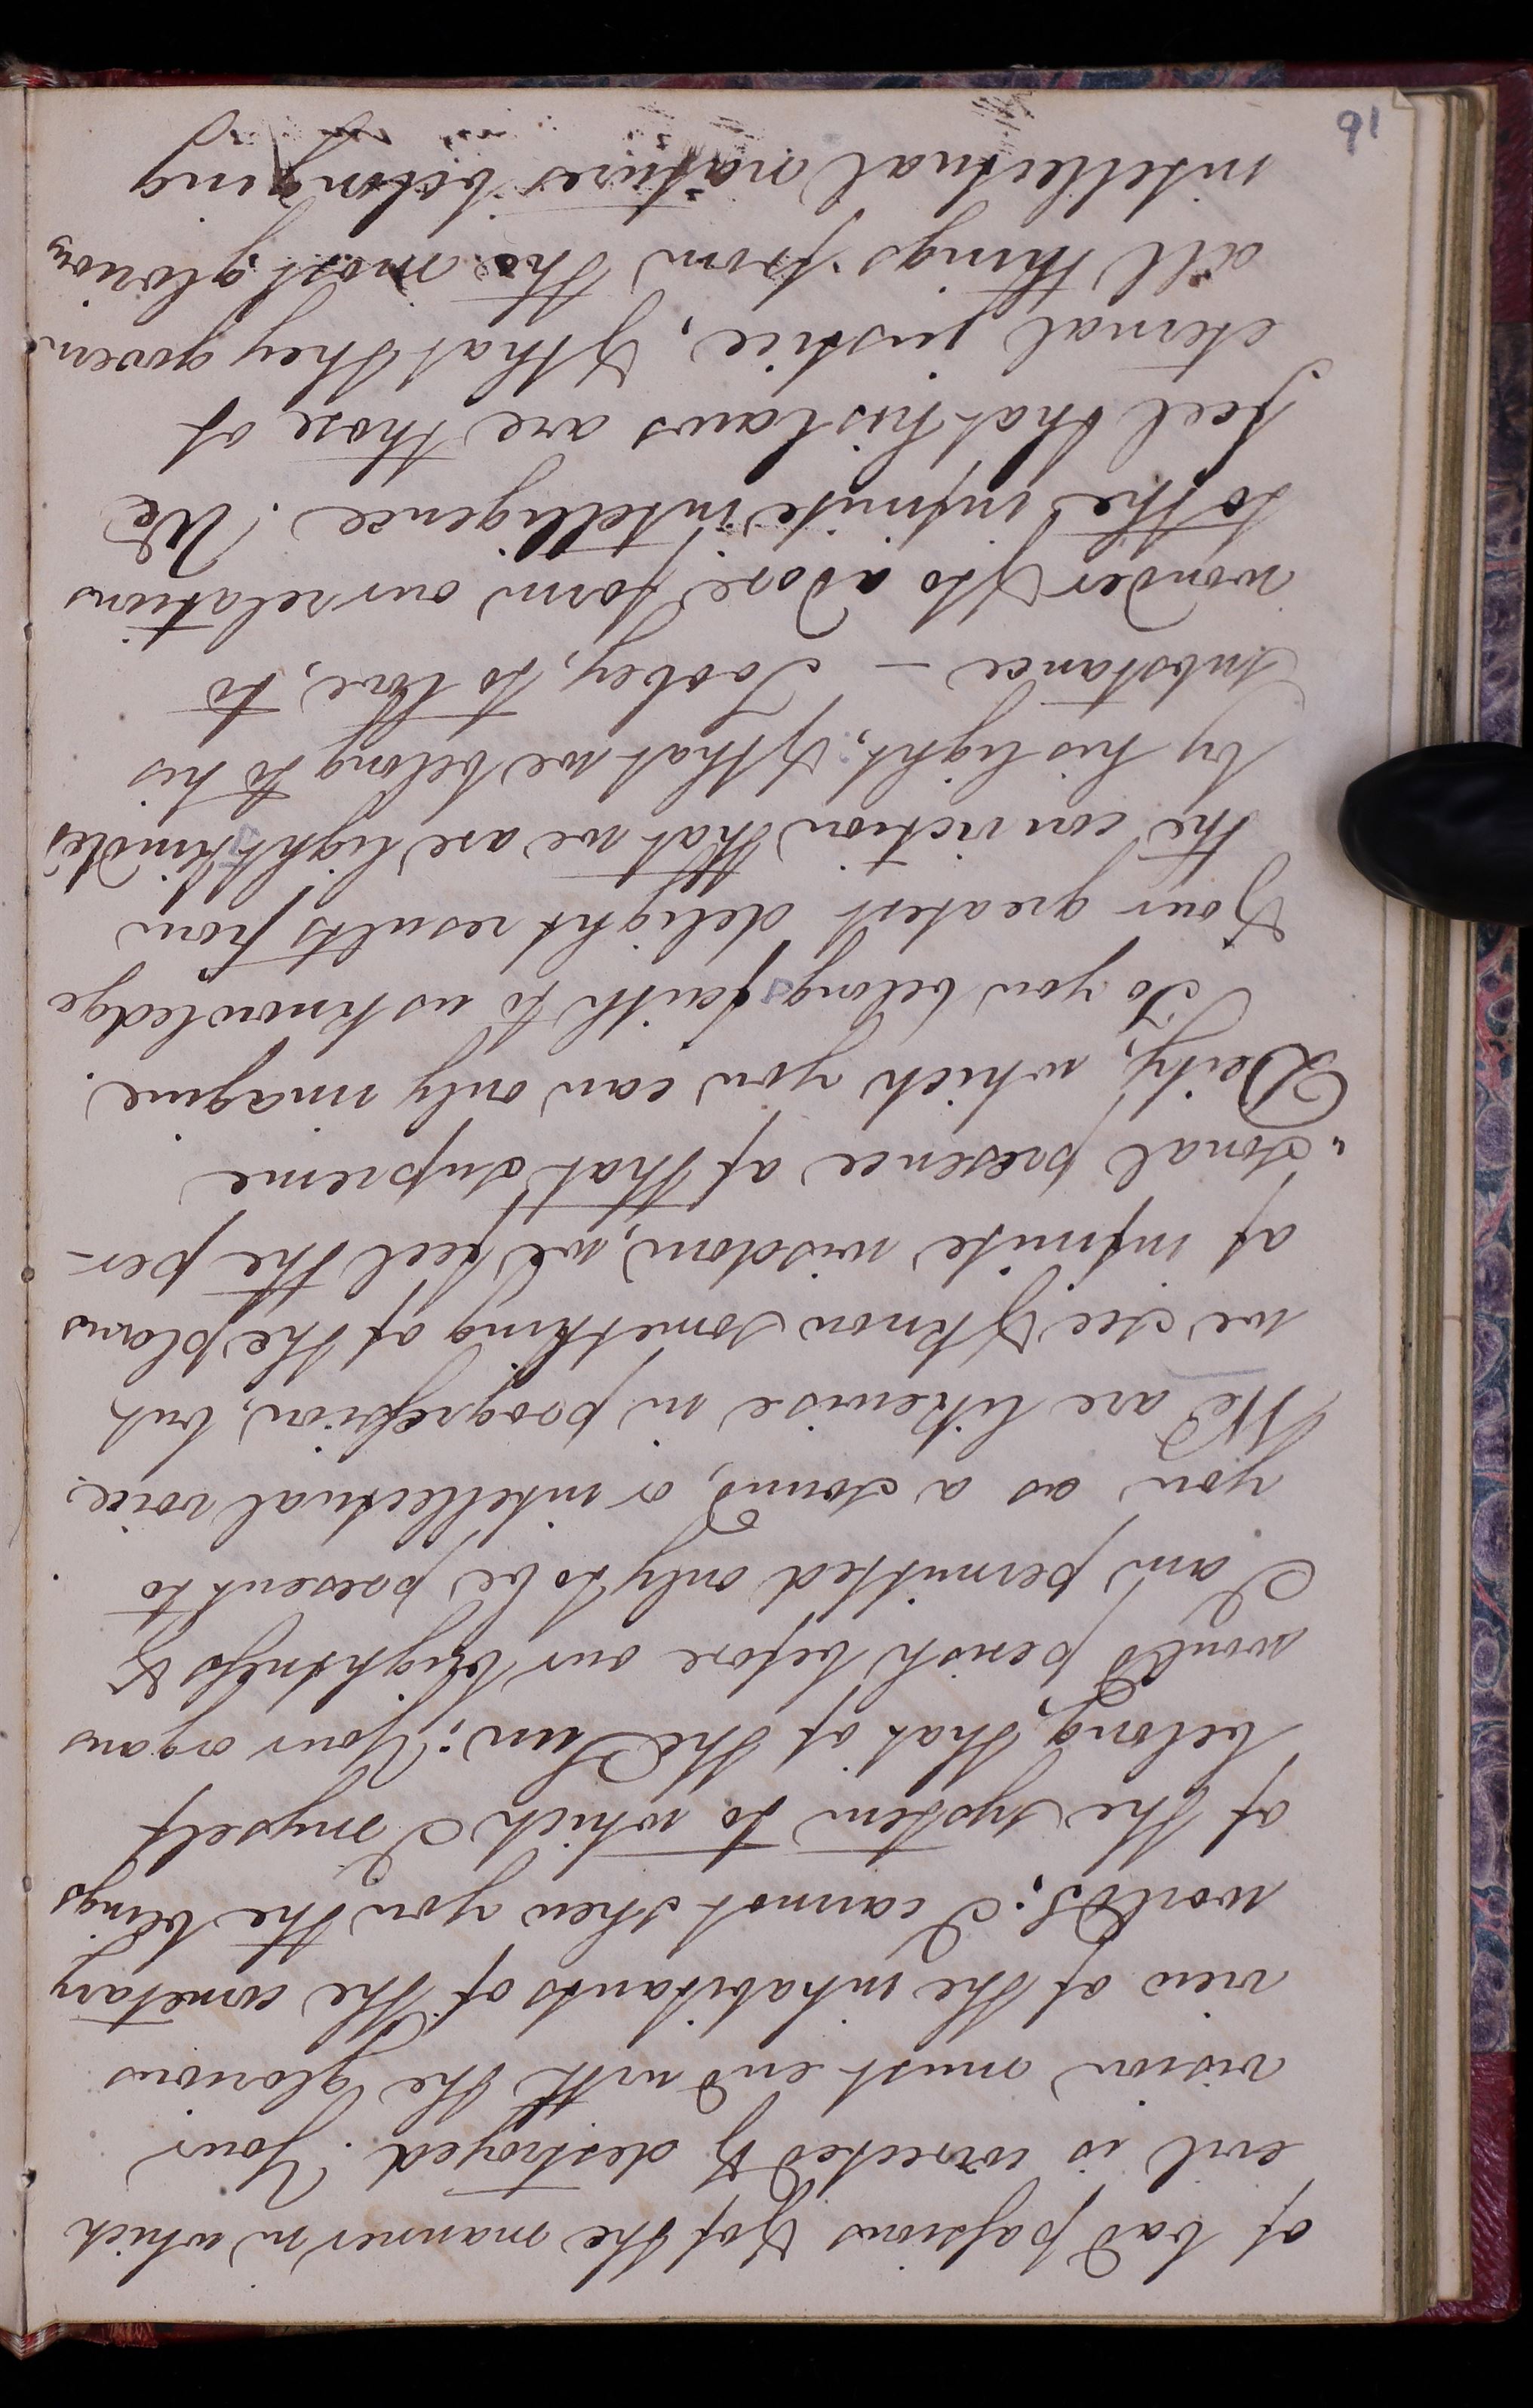 of bad passions & of the manner in which
evil is corrected & destroyed. Your
vision must end with the glorious
view of the inhabitants of the cometary
worlds; I cannot shew you the beings
of the system to which I myself
belong, that of the Sun; Your organs
would perish before our brightness &
I am permitted only to be present to
you as a sound, or intellectual voice.
We are likewise in progression, but
we see & know something of the plans
of infinite wisdom, we feel the per-
"sonal presence of that supreme
Deity, which you can only imagine.
To you belongs faith to us knowledge
& our greatest delight results from
the conviction that we are lights kindled
by his light, & that we belong to his
substance – To obey, to love, to
wonder & to adore form our relations
to the infinite intelligence. We
feel that his laws are those of
eternal justice, & that they govern
all things from the most glorious
intellectual natures belonging
91